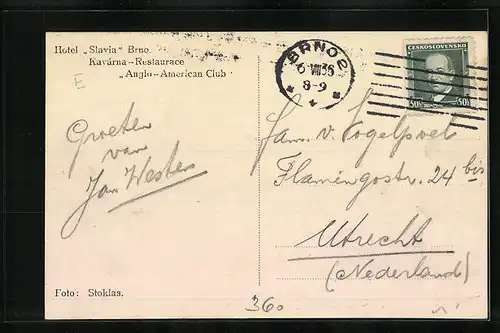 Hotel „Slavia" Brno.
Kavárna-Restaurace
„Anglo-American Club"
E
BRNO 2
6 VIII 36
8-9
ČESKOSLOVENSKO
50h 50h
Groeten
van
Jan Westen
Fam. v. Vogelpoel
Flamingostr. 24 bis
Utrecht
(Nederland)
Foto: Stoklas.
360